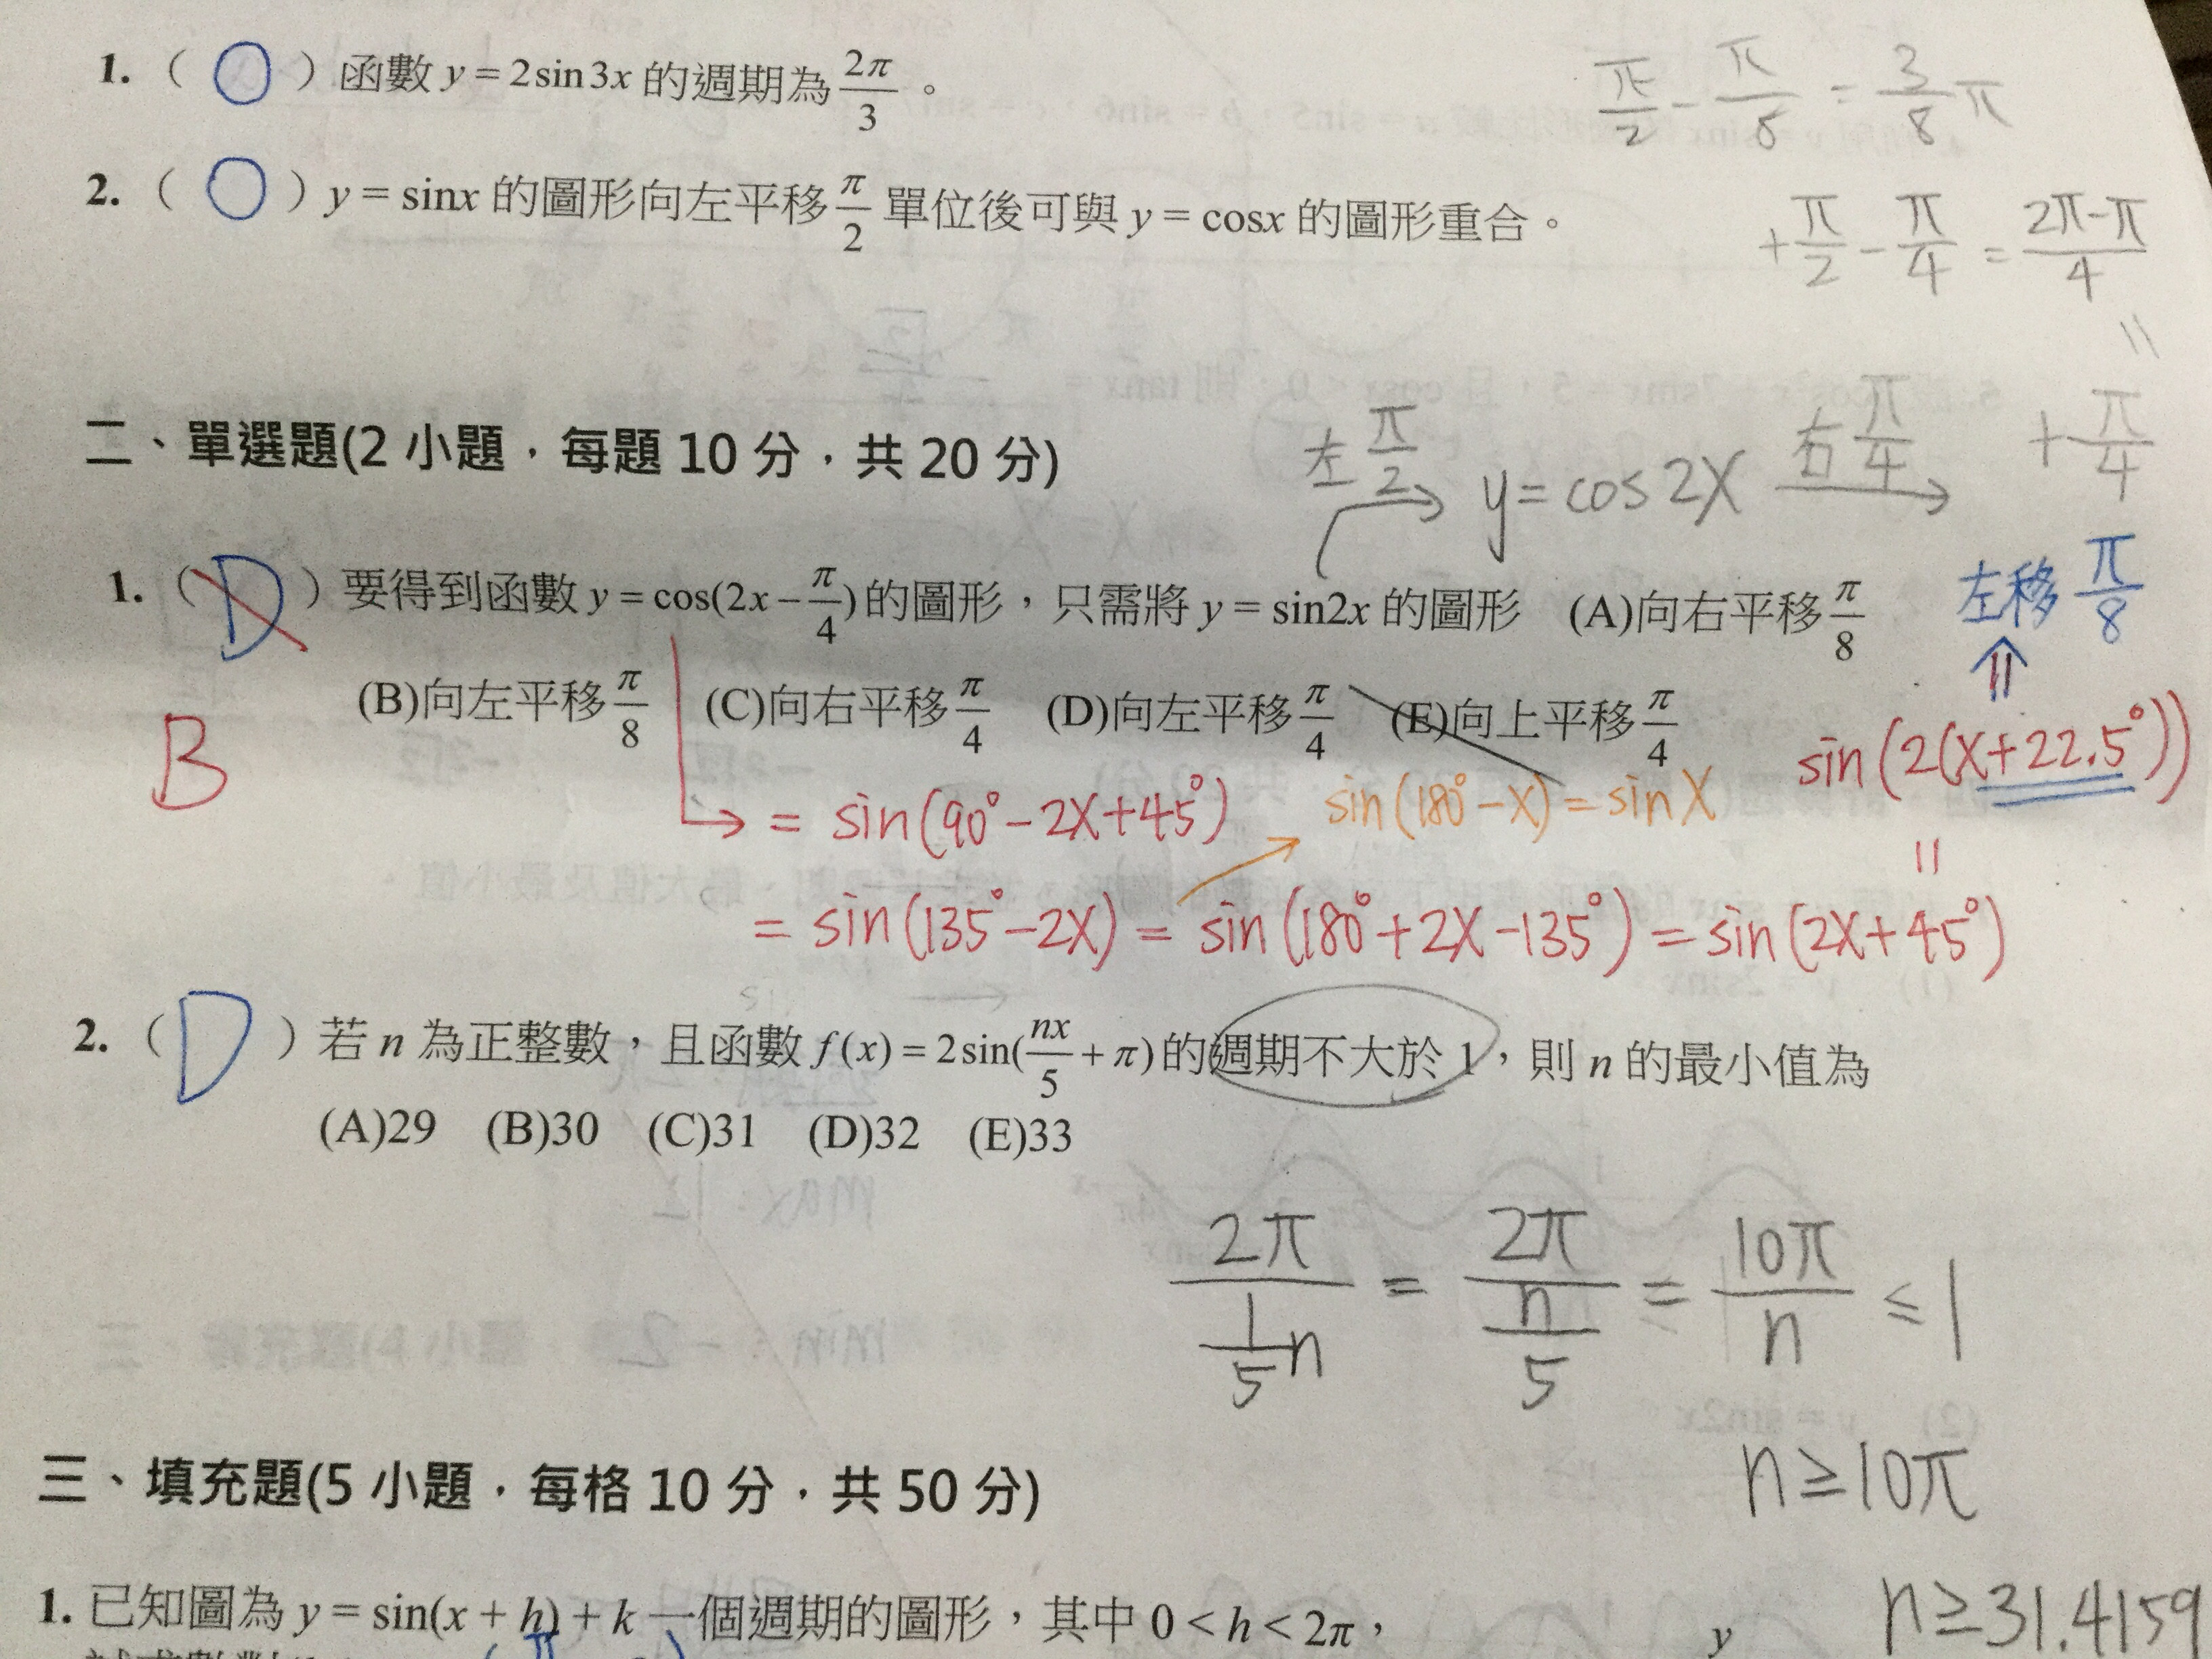 1. ( O ) 函數 y = 2sin3x 的週期為 2π/3 。
π/2 - π/8 = 3/8 π
2. ( O ) y = sinx 的圖形向左平移 π/2 單位後可與 y = cosx 的圖形重合。
+π/2 - π/4 = 2π-π/4
=
+π/4
二、單選題(2 小題，每題 10 分，共 20 分)
左 π/2 → y = cos 2X 右 π/4 →
1. ( D ) 要得到函數 y = cos(2x - π/4) 的圖形，只需將 y = sin2x 的圖形 (A)向右平移 π/8
左移 π/8
(B)向左平移 π/8 (C)向右平移 π/4 (D)向左平移 π/4 (E)向上平移 π/4
B
sin(2(X+22.5°))
= sin(90°-2X+45°)
sin(180°-X) = sinX
= sin(135°-2X) = sin(180°+2X-135°) = sin(2X+45°)
2. ( D ) 若 n 為正整數，且函數 f(x) = 2sin(nx/5 + π) 的週期不大於 1，則 n 的最小值為
(A)29 (B)30 (C)31 (D)32 (E)33
2π/(1/5 n) = 2π/(n/5) = 10π/n ≤ 1
n ≥ 10π
三、填充題(5 小題，每格 10 分，共 50 分)
n ≥ 31.4159
1. 已知圖為 y = sin(x + h) + k 一個週期的圖形，其中 0 < h < 2π，
y